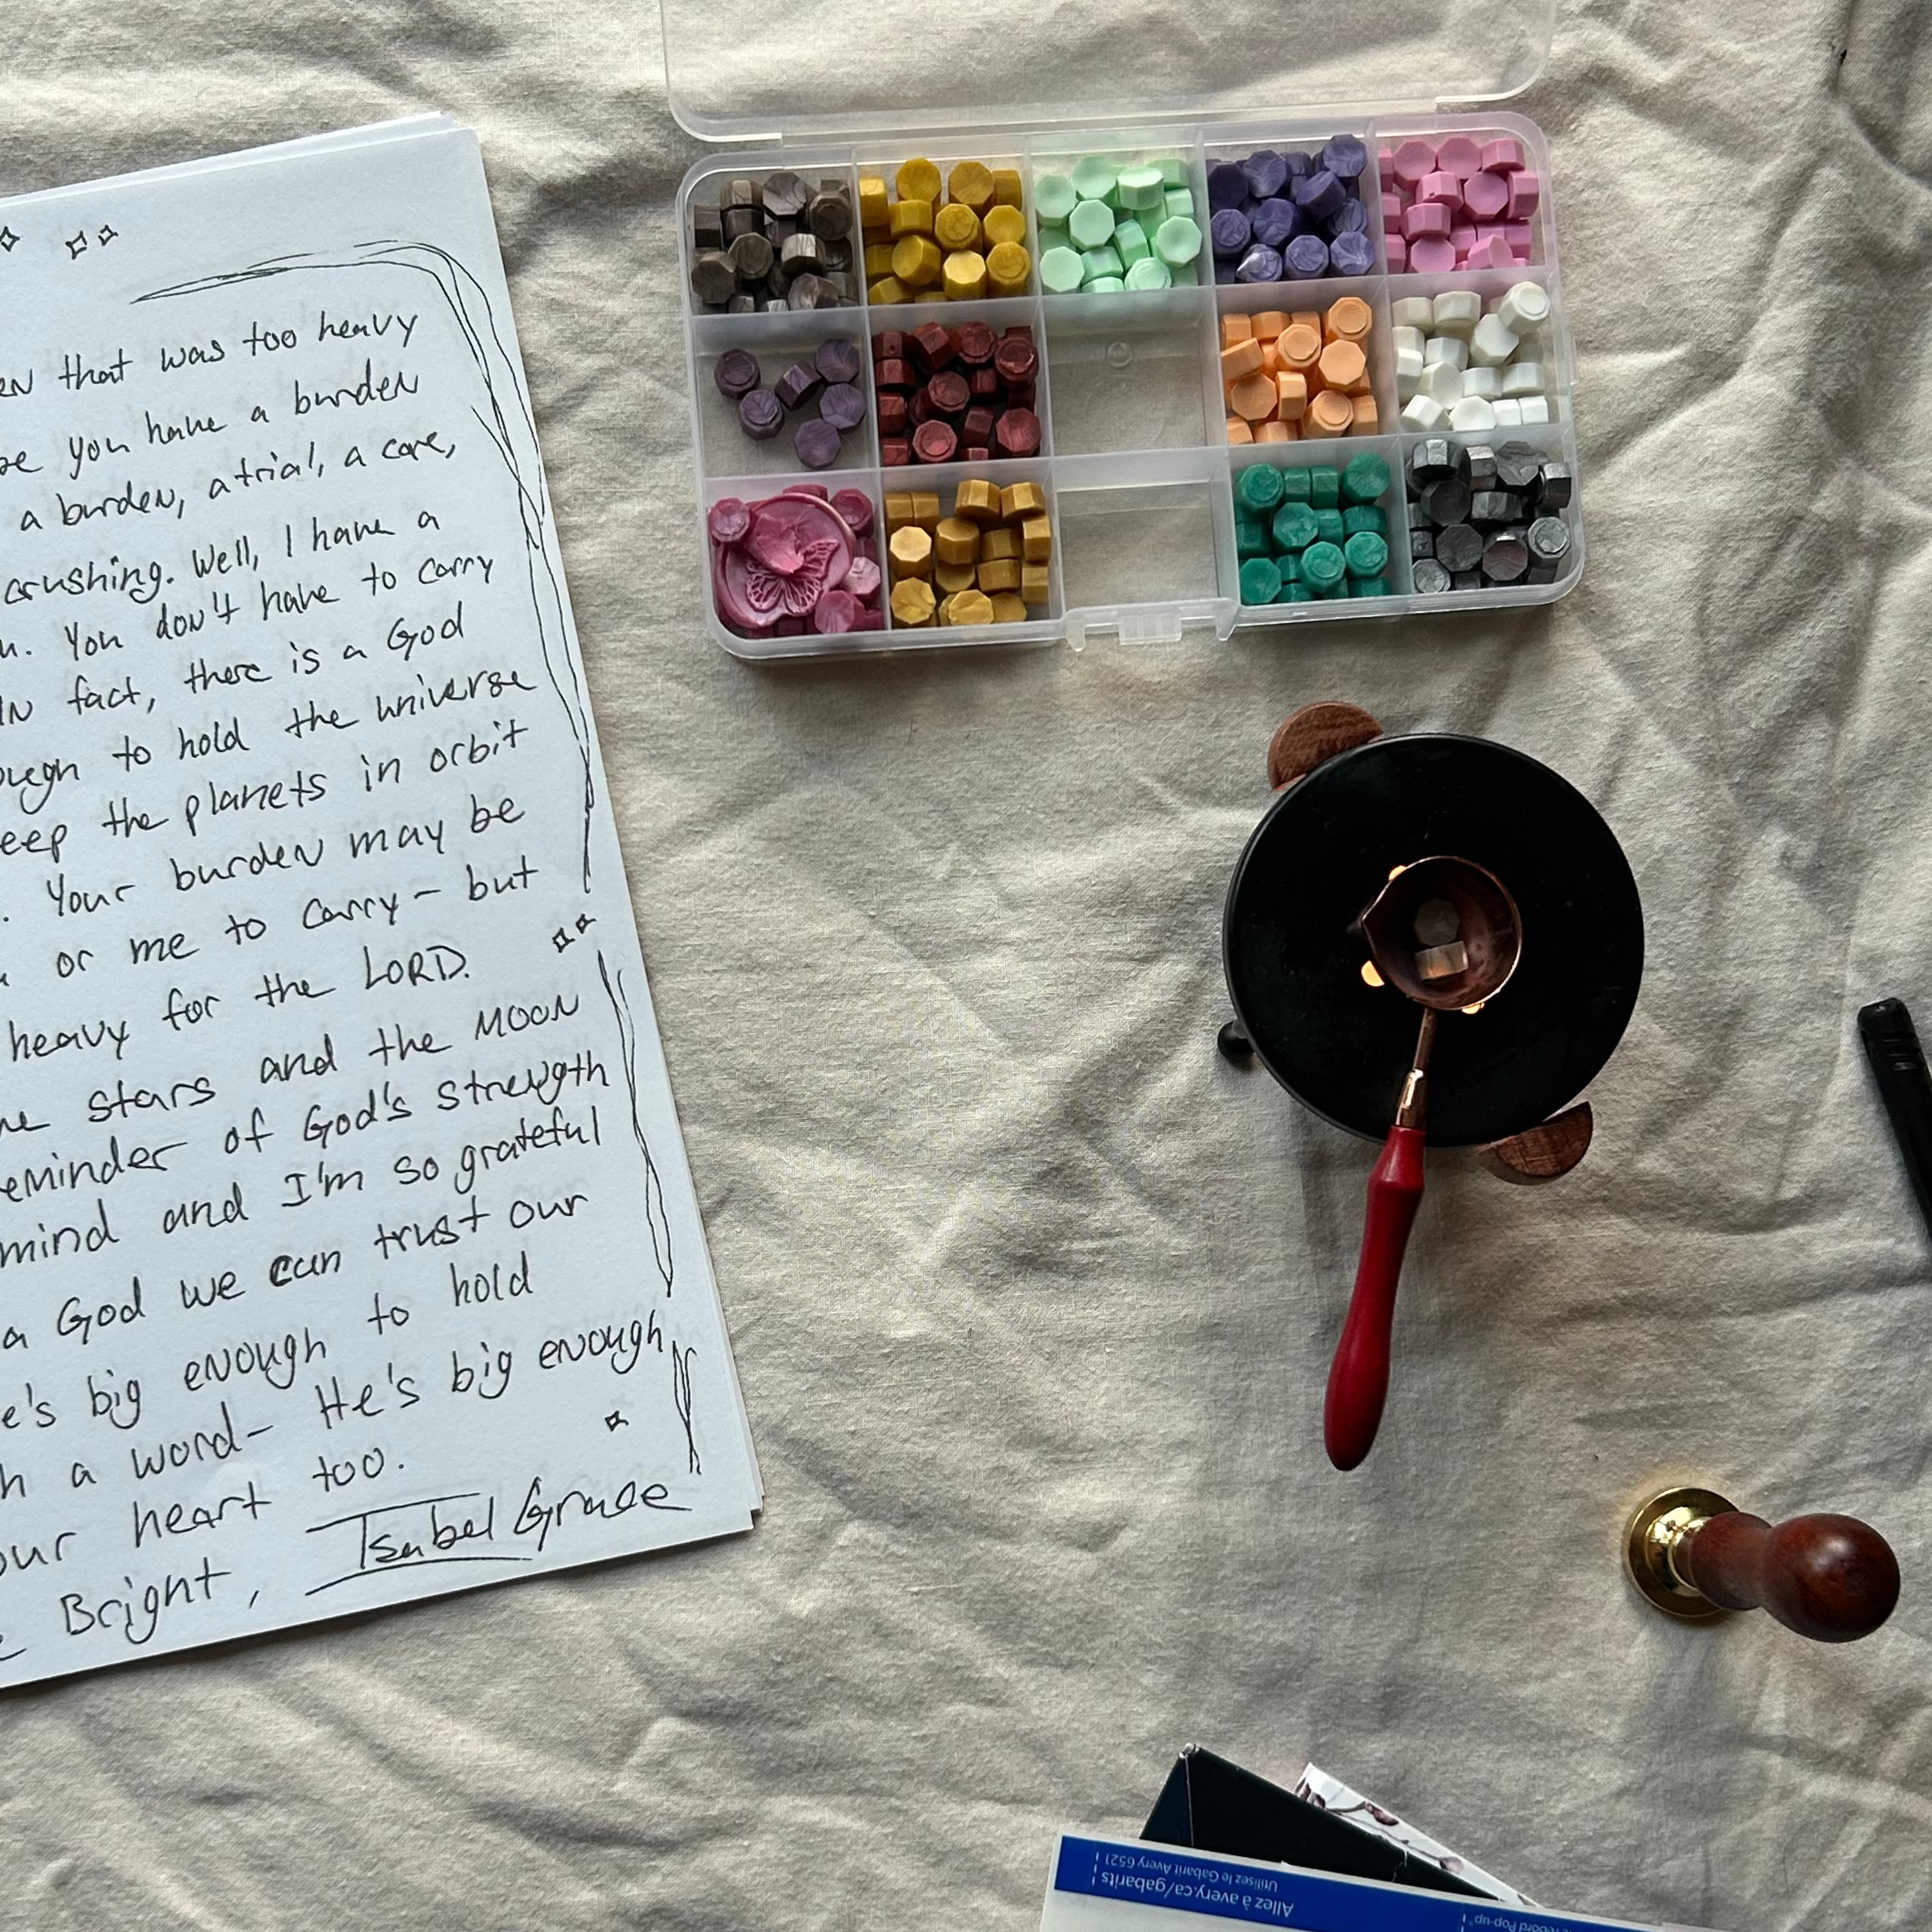 that was too heavy
you have a burden
a burden, a trial, a care,
crushing. Well, I have a
You don't have to carry
IN fact, there is a God
to hold the universe
the planets in orbit
. Your burden may be
or me to carry - but
heavy for the LORD.
stars and the MOON
of God's strength
mind and I'm so grateful
a God we can trust our
big enough to hold
a word- He's big enough
heart too.
Bright, Isabel Grace
Allez à avery.ca/gabarits
Utilisez le Gabarit Avery 6521
rebord Pop-up